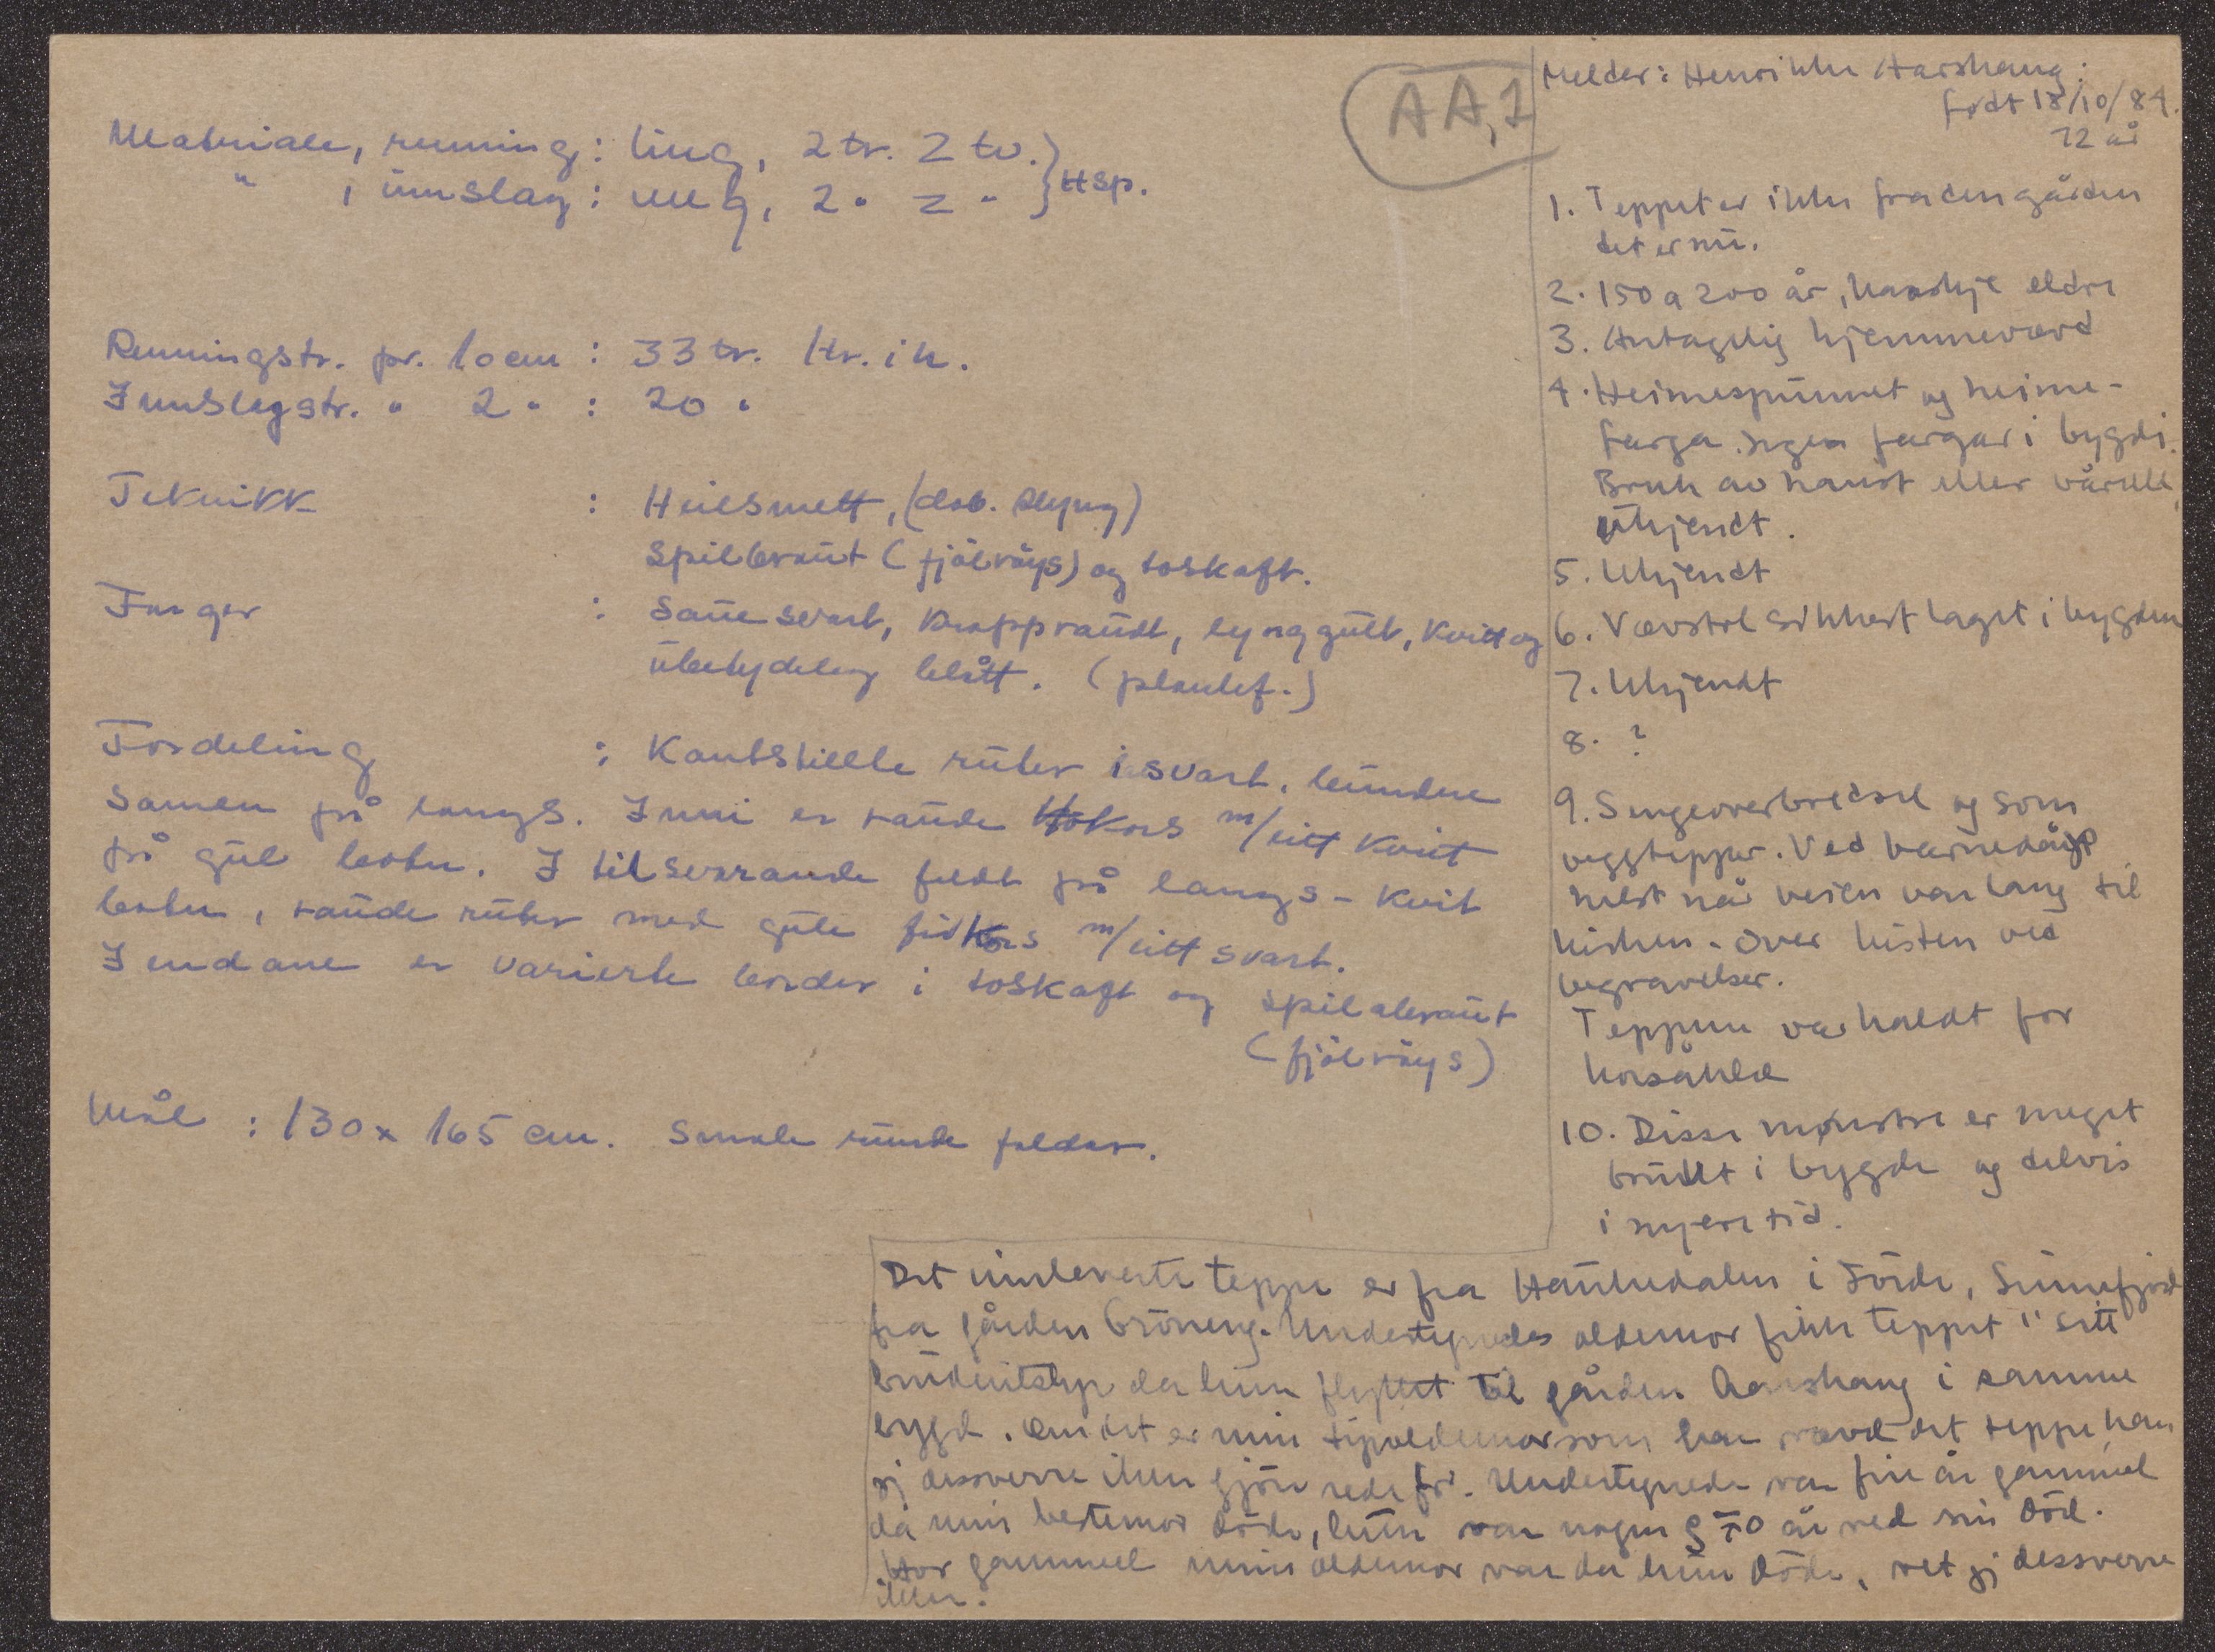 AA,1
Materiale, renning: ling, 2 tr. Z tv. } Hsp.
" , innslag: ullg, 2 " Z " }
Renningstr. pr. 10 cm : 33 tr. 1 tr. i h.
Innslagstr. " 2 " : 20 "
Teknikk : Heilsmett, (dob. slyng)
spilbraut (fjölvåys) og toskaft.
Farger : Sauesvart, krappraudt, lynggult, kvitt og
ubetydeleg blått. (plantef.)
Fordeling : Kantstillte ruter i svart, bundne
samen på langs. Inni er raude kors m/eitt kvitt
på gul botn. I tilsvarande feldt på langs - kvit
botn, raude ruter med gule kors m/eitt svart.
I endane er varierte border i toskaft og spilabraut
(fjölvåys)
Mål : 130 x 165 cm. Smale runde faldar.
Melder: Henrikke Aarshaug:
født 18/10/84.
72 år
1. Teppet er ikke fra den gården
det er nu.
2. 150 a 200 år, kanskje eldre
3. Antagelig hjemmevævd
4. Heimespunnet og heime-
farga. Ingen fargar i bygdi.
Bruk av haust eller vårull
ukjendt.
5. Ukjendt
6. Vævstol sikkert laget i bygden
7. Ukjendt
8. ?
9. Sengeoverbredsel og som
veggtepper. Ved barnedåp
helst når veien var lang til
kirken. Over kisten ved
begravelser.
Teppene var kaldt for
korsåkle
10. Disse mønstre er meget
brukt i bygde og delvis
i nyere tid.
Det innleverte teppe er fra Haukedalen i Förde, Sunnfjord
fra gården Gröneng. Undertegnedes oldemor fikk teppet i sitt
brudeutstyr da hun flyttet til gården Aarshaug i samme
bygd. Om det er min tipoldemor som har vævd det teppe, kan
jeg dessverre ikke gjöre rede for. Undertegnede var fire år gammel
da min bestemor döde, hun var nogen og 70 år ved sin död.
Hvor gammel min oldemor var da hun döde, vet jeg dessverre
ikke.